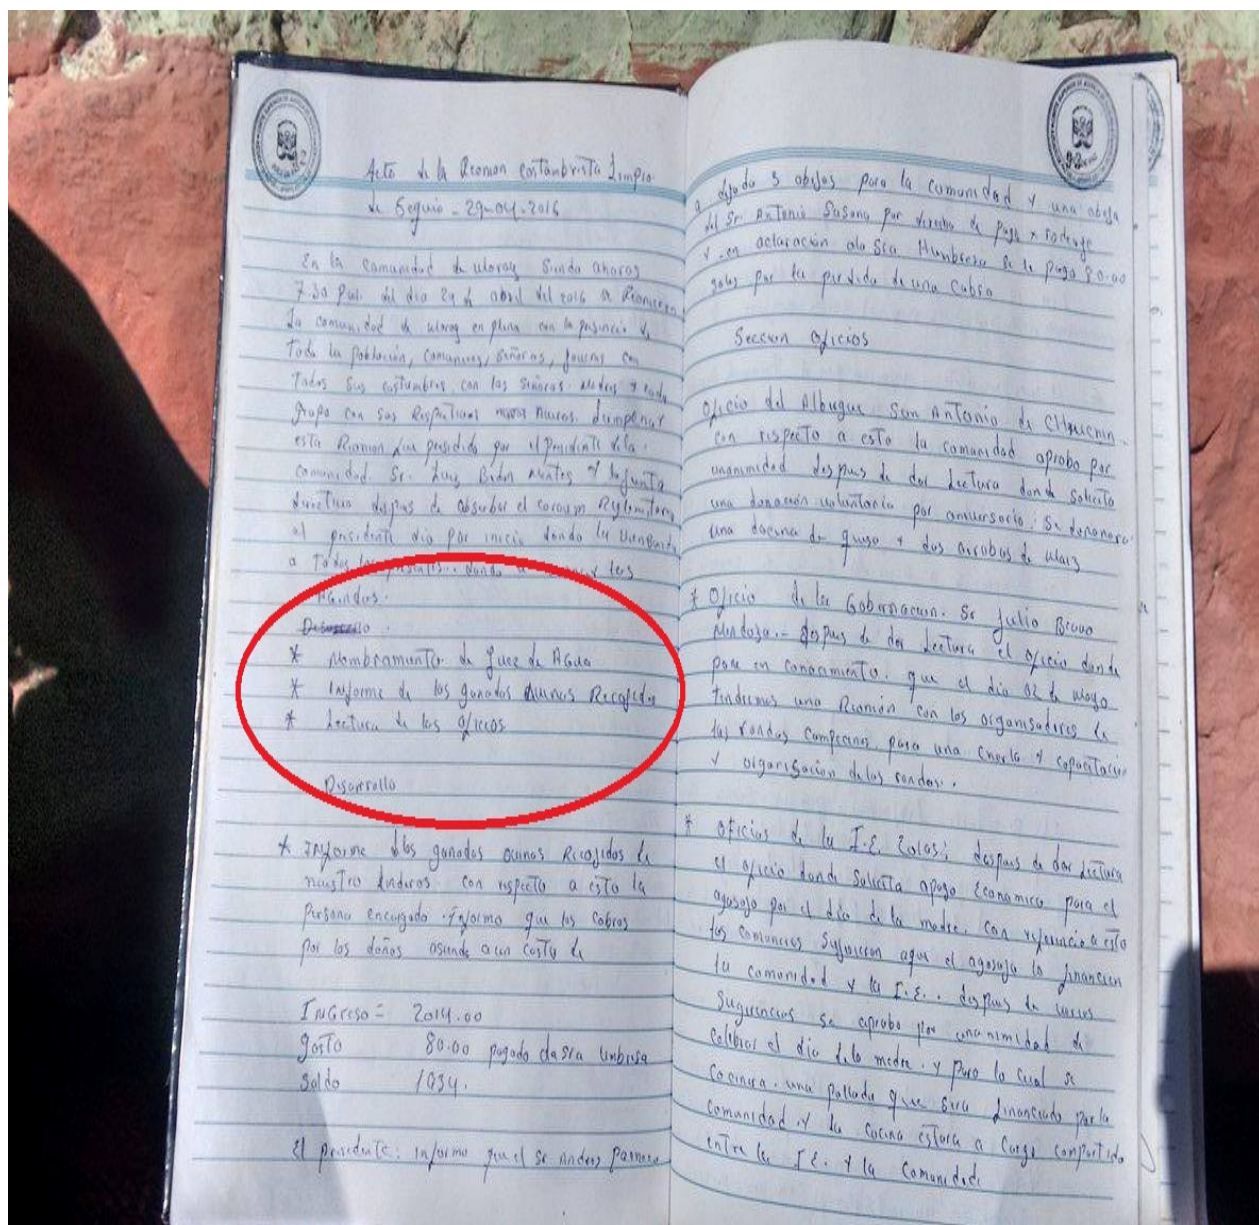 Acto de la Reonion Costambrista Limpia
de Sequia - 29-04-2016
En la comunidad de uloray siendo ahoras
7.30 p.m. del dia 29 de abril del 2016 se Reonieron
La comunidad de uloray en plena con la presencia de
Toda la Población, comuneros, señoras, jovenes con
Todos sus costumbres con las señoras y cada
grupo con sus Respectivos
esta Reonion fue presidido por el presidente de la
comunidad Sr. Luis y la junta
directiva despues de obserbar el corum Reglamitario
el presidente dio por inicio dando la bienvenida
a Todos los presentes. dando a los
Agendas.
* Nombramiento de Juez de Agua
* Informe de los ganados Recojidos
* Lectura de los oficios
Disarrollo
* Informe dlos ganados ouinos Recojidos de
nuestro linderos. con respecto a esto la
Persona encargado. Informo que los cobros
por los daños asiende a un costo de
INGreso = 2014.00
gasto 80.00 pagado dla sra
Saldo 1034.
El presidente: informo que el Sr Andres
a dejado 5 obejas para la comunidad y una obeja
del Sr. Antonio Susano por derecho de pago x
y en aclaracion ala Sra se le pago 80.00
soles por la perdida de una cabra
Seccion Oficios
Oficio del Albergue San Antonio de
con respecto a esto la comunidad aprobo por
unanimidad despues de dar Lectura donde solicita
una donacion voluntaria por aniversario; Se donara
una docena de queso y dos arrobas de maiz
* Oficio de la Gobernacion. Sr Julio Bravo
Mendoza.- despues de dar Lectura el oficio donde
pone en conocimiento. que el dia 02 de mayo
Tindremos una Reonion con los organisadores de
las rondas campecinas para una charla y capacitacion
y organisación delas rondas.
* Oficios de la I.E. despues de dar Lectura
el oficio donde solicita apoyo Economico para el
agasajo por el día de la madre. Con referencia a esto
los comuneros que el agasajo lo financien
la comunidad y la I.E.. despues de varios
Sugirencias se aprobo por unanimidad de
celebrar el dia dela madre. y para lo cual se
Cocinara. una pollada que sera financiado por la
comunidad. y la cocina estara a cargo compartido
entre la I.E. y la Comunidad.